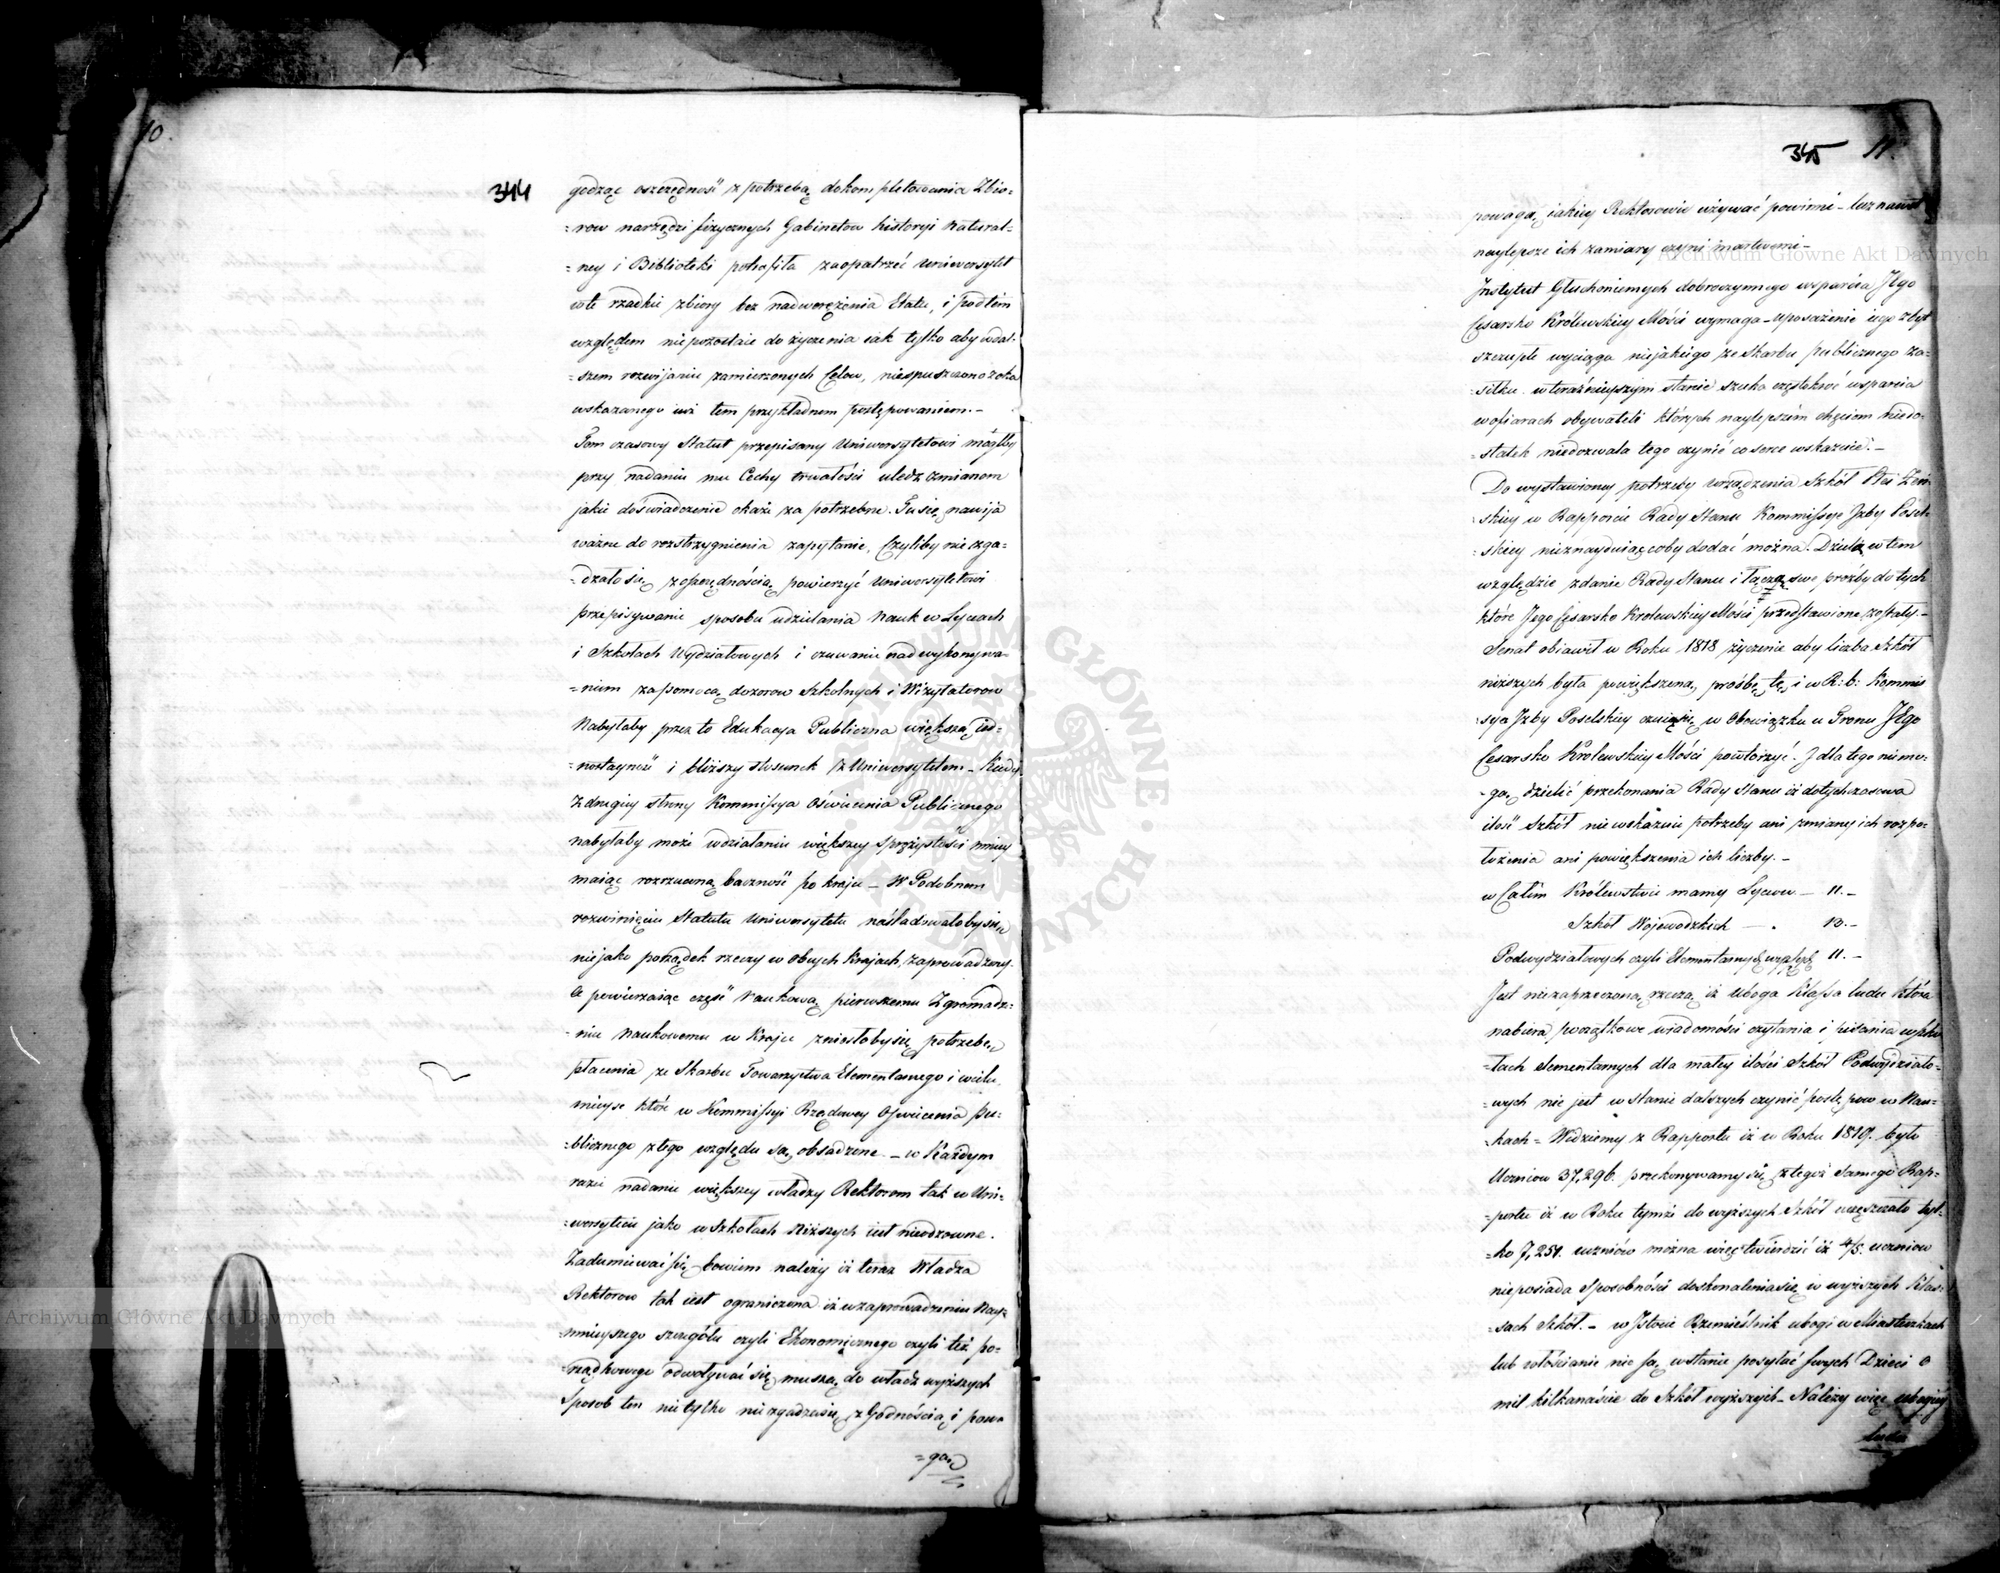 10.
344
godząc oszczędność z potrzebą dokompletowania Zbio-
=row narzędzi fizycznych Gabinetow historyi Natural-
=ney i Biblioteki potrafiła zaopatrzeć Uniwersytet
w te rzadkie zbiory bez nadwerężenia Etatu, i pod tém
względem nie pozostaie do życzenia iak tylko aby w dal-
=szem rozwijaniu zamierzonych Celow, niespuszczono z oka
wskazanego iuż tem przykładnem postępowaniem. –
Tom czasowy Statut przepisany Uniwersytetowi mógłby
przy nadaniu mu Cechy trwałości uledz zmianom
jakie doświadczenie okaże za potrzebne. Tu się nawija
ważne do rozstrzygnienia zapytanie, Czyliby nie zga-
=dzało się z oszczędnością powierzyć Uniwersytetowi
przepisywanie sposobu udzielania Nauk w Lyceach
i Szkołach Wydziałowych i czuwanie nad wykonywa-
=niem za pomocą dozorow Szkolnych i Wizytatorow
Nabyłaby przez to Edukacya Publiczna większą ied-
=nostayność i bliższy stosunek z Uniwersytetem – Kiedy
z drugiey strony Kommissya Oświecenia Publicznego
nabyłaby może w działaniu większey sprężystości mniey
maiąc rozrzuconą baczność po kraju – W Podobnem
rozwinięciu Statutu Uniwersytetu naśladowałoby się
niejako porządek rzeczy w obcych Krajach, zaprowadzony.
A powierzaiąc część Naukową pierwszemu Zgromadze-
-niu Naukowemu w Kraju zniosłoby się potrzebę
płacenia ze Skarbu Towarzystwa Elementarnego i wielu
mieysc które w Kommissyi Rządowey Oświecenia Pu-
=blicznego z tego względu są obsadzone. – w Każdym
razie nadanie większey władzy Rektorom tak w Uni-
=wersytecie jako w Szkołach Niższych iest nieodzowne.
Zadumiewać się bowiem należy iż teraz Władza
Rektorow tak iest ograniczona iż w zaprowadzeniu Nay-
=mnieyszego szczegółu czyli Ekonomicznego czyli też po-
=rządkowego odwoływać się muszą do władz wyższych
Sposob ten nie tylko nie zgadza się z Godnością i powa
=gą
345 11.
powagą iakiey Rektorowie używać powinni – lecz nawet
naylepsze ich zamiary czyni martwemi –
Instytut Głuchoniemych dobroczynnego wsparcia JEgo
Cesarsko Królewskiey Mości wymaga – uposażenie iego zbyt
szczupłe wyciąga niejakiego ze Skarbu publicznego za-
=siłku. w teraźnieyszym stanie szuka częstokroć wsparcia
w ofiarach obywateli których naylepszém chęciom niedo-
=statek niedozwala tego czynić co serce wskazuie. –
Do wystawioney potrzeby urządzenia Szkół Płci Żeń-
=skiey w Rapporcie Rady Stanu Kommissya Izby Posel-
=skiey nieznayduie coby dodać można. Dzieli w tem
względzie zdanie Rady Stanu i łączą swe prośby do tych
które Jego Cesarsko Królewskiey Mości przedstawione zostały –
Senat obiawił w Roku 1818 życzenie aby liczba Szkół
niższych była powiększona, prośbę tę i w R: b: Kommis
sya Izby Poselskiey czuie się w Obowiązku u Tronu JEgo
Cesarsko Królewskiey Mości powtorzyć. I dla tego nie mo-
-gą dzielić przekonania Rady Stanu iż dotychczasowa
ilość Szkół nie wskazuie potrzeby ani zmiany ich rozpo-
łożenia ani powiększenia ich liczby. –
w Całém Królewstwie mamy Lyceów – 11. –
Szkół Wojewodzkich – . 13. –
Podwydziałowych czyli Elementarnych wyższych 11. –
Jest niezaprzeczoną rzeczą iż uboga Klassa ludu która
nabiera początkowe wiadomości czytania i pisania w szko
=łach elementarnych dla małey ilości Szkół Podwydziało-
=wych nie jest w stanie dalszych czynić postępow w Nau-
=kach = Widziemy z Rapportu iż w Roku 1819. było
Uczniow 37,296. przekonywamy się z tegoż samego Rap-
=portu iż w Roku tymże do wyższych Szkół uczęszczało tyl-
=ko 7,251. uczniów można więc twierdzić iż 4/5. uczniow
nieposiada Sposobności doskonalenia się w wyższych Klas-
=sach Szkół. – w Istocie Rzemieślnik ubogi w Miasteczkach
lub włościanie nie są w stanie posyłać swych Dzieci o
mil kilkanaście do Szkół wyższych – Należy więc ubogiey
ludu
Archiwum Główne Akt Dawnych
Archiwum Główne Akt Dawnych
ARCHIWUM GŁÓWNE AKT DAWNYCH